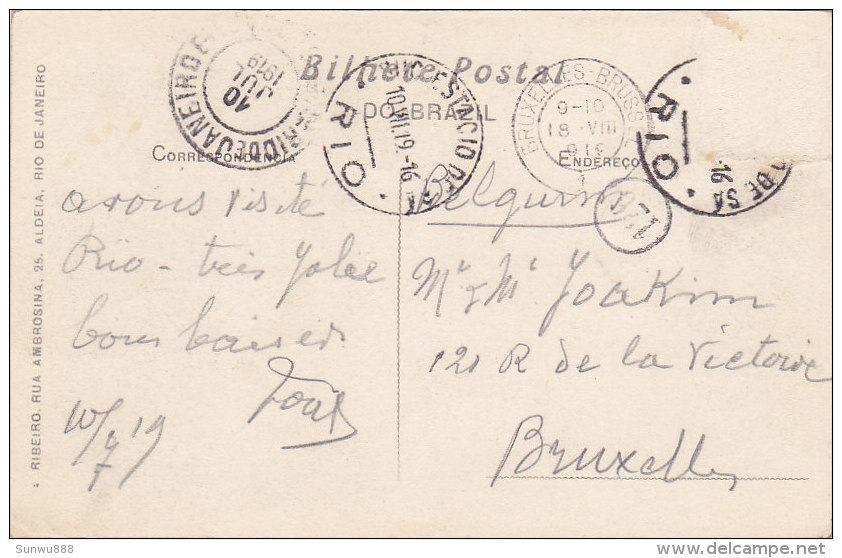 Bilhete Postal
DO BRAZIL
CORRESPONDENCIA
ENDEREÇO
RIBEIRO. RUA AMBROSINA, 25. ALDEIA, RIO DE JANEIRO
RIO DE JANEIRO
10
JUL
1919
ESTACIO DE SÁ
10.VII.19.-16
RIO
BRUXELLES-BRUSSEL
9-10
18 VIII
1919
1
RIO
DE SÁ
16
avons visité
Rio - très jolie
bons baisers
10/7 19
Belgium
Mr & Me Joakim
121 R de la Victoire
Bruxelles
Sunwu888
delcampe.net